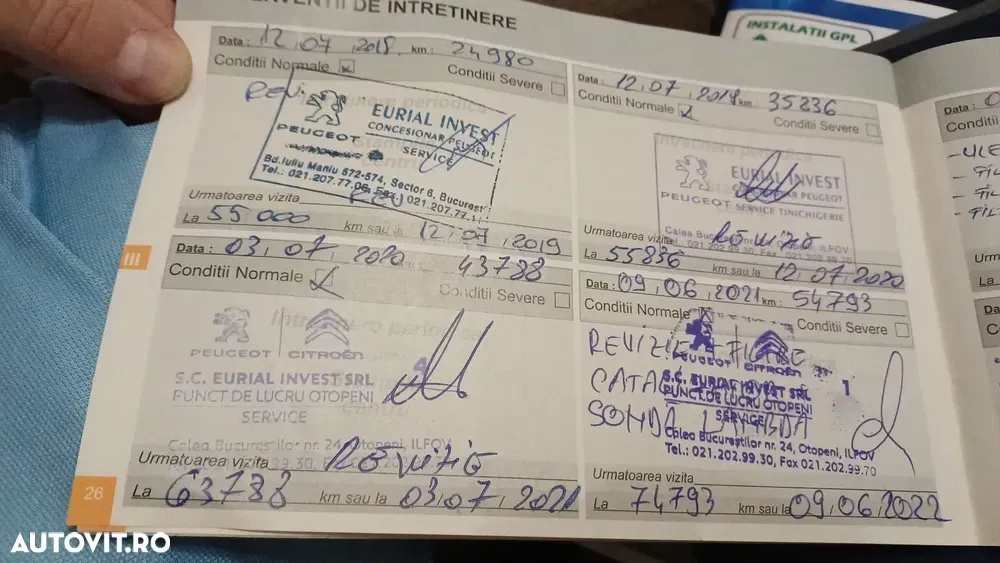 INTERVENTII DE INTRETINERE
INSTALATII GPL
Data : 12 . 07 . 2018 . km : 24980
Conditii Normale
Conditii Severe
PEUGEOT
EURIAL INVEST
CONCESIONAR PEUGEOT
SERVICE
Bd.Iuliu Maniu 572-574, Sector 6, Bucuresti
Tel.: 021.207.77.06, Fax 021.207.77.1
Urmatoarea vizita
La 55 000 km sau la 12 . 07 . 2019
Data : 12 . 07 . 2019 km : 35836
Conditii Normale
Conditii Severe
PEUGEOT
EURIAL INVEST
CONCESIONAR PEUGEOT
SERVICE TINICHIGERIE
Urmatoarea vizita Revizie
La 55836 km sau la 12 . 07 . 2020
III
Data : 03 . 07 . 2020 43788
Conditii Normale
Conditii Severe
PEUGEOT CITROËN
S.C. EURIAL INVEST SRL
PUNCT DE LUCRU OTOPENI
SERVICE
Calea Bucurestilor nr. 24, Otopeni, ILFOV
Urmatoarea vizita Revizie
La 63788 km sau la 03 . 07 . 2021
Data : 09 . 06 . 2021 km : 54793
Conditii Normale
Conditii Severe
REVIZIE + FILTRE
PEUGEOT CITROËN
S.C. EURIAL INVEST SRL
PUNCT DE LUCRU OTOPENI
SERVICE
SONDA LAMBDA
Calea Bucurestilor nr. 24, Otopeni, ILFOV
Tel.: 021.202.99.30, Fax 021.202.99.70
Urmatoarea vizita
La 74793 km sau la 09 . 06 . 2022
26
Data :
Conditii
La
AUTOVIT.RO